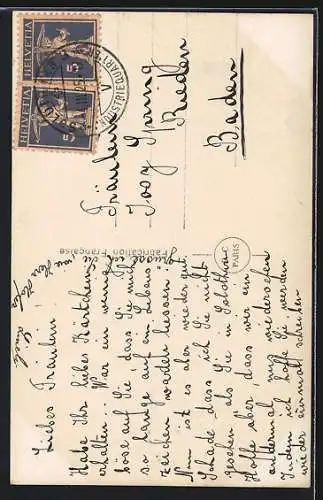 HELVETIA
HELVETIA
5
5
INDUSTRIEQUARTIER
V
Fräulein
Josy Spring
Rieden
Baden
Fabrication Française
PARIS
Liebes Fräulein
Habe Ihr liebes Kärtchen
erhalten. War ein wenig
böse auf Sie, dass Sie mich
so lange auf ein Lebens
zeichen warten liessen
Nun ist es aber wieder gut.
Schade dass ich Sie nicht
gesehen als Sie in
Hoffe aber, dass wir ein
andermal uns wiedersehen
Indem ich hoffe Sie werden
wieder einmal schreiben
Grüsse ich Sie